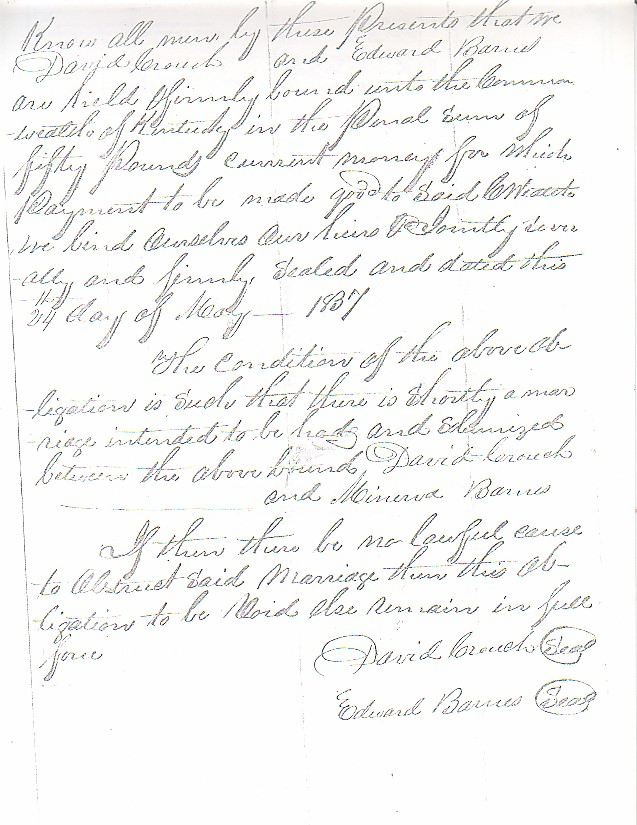 Know all men by these Presents that we
David Crouch and Edward Barnes
are held & firmly bound unto the Common
-wealth of Kentucky in the Penal Sum of
fifty Pounds current money for which
Payment to be made good to Said
we bind Ourselves Our heirs & Jointly Sever
ally and firmly Sealed and dated this
24th day of May — 1837
The Condition of the above ob-
-ligation is Such that there is Shortly a mar
riage intended to be had and
between the above bound David Crouch
and Minerva Barnes
If then there be no lawful cause
to Obstruct Said Marriage then this ob-
ligation to be Void else remain in full
force
David Crouch Seal
Edward Barnes Seal